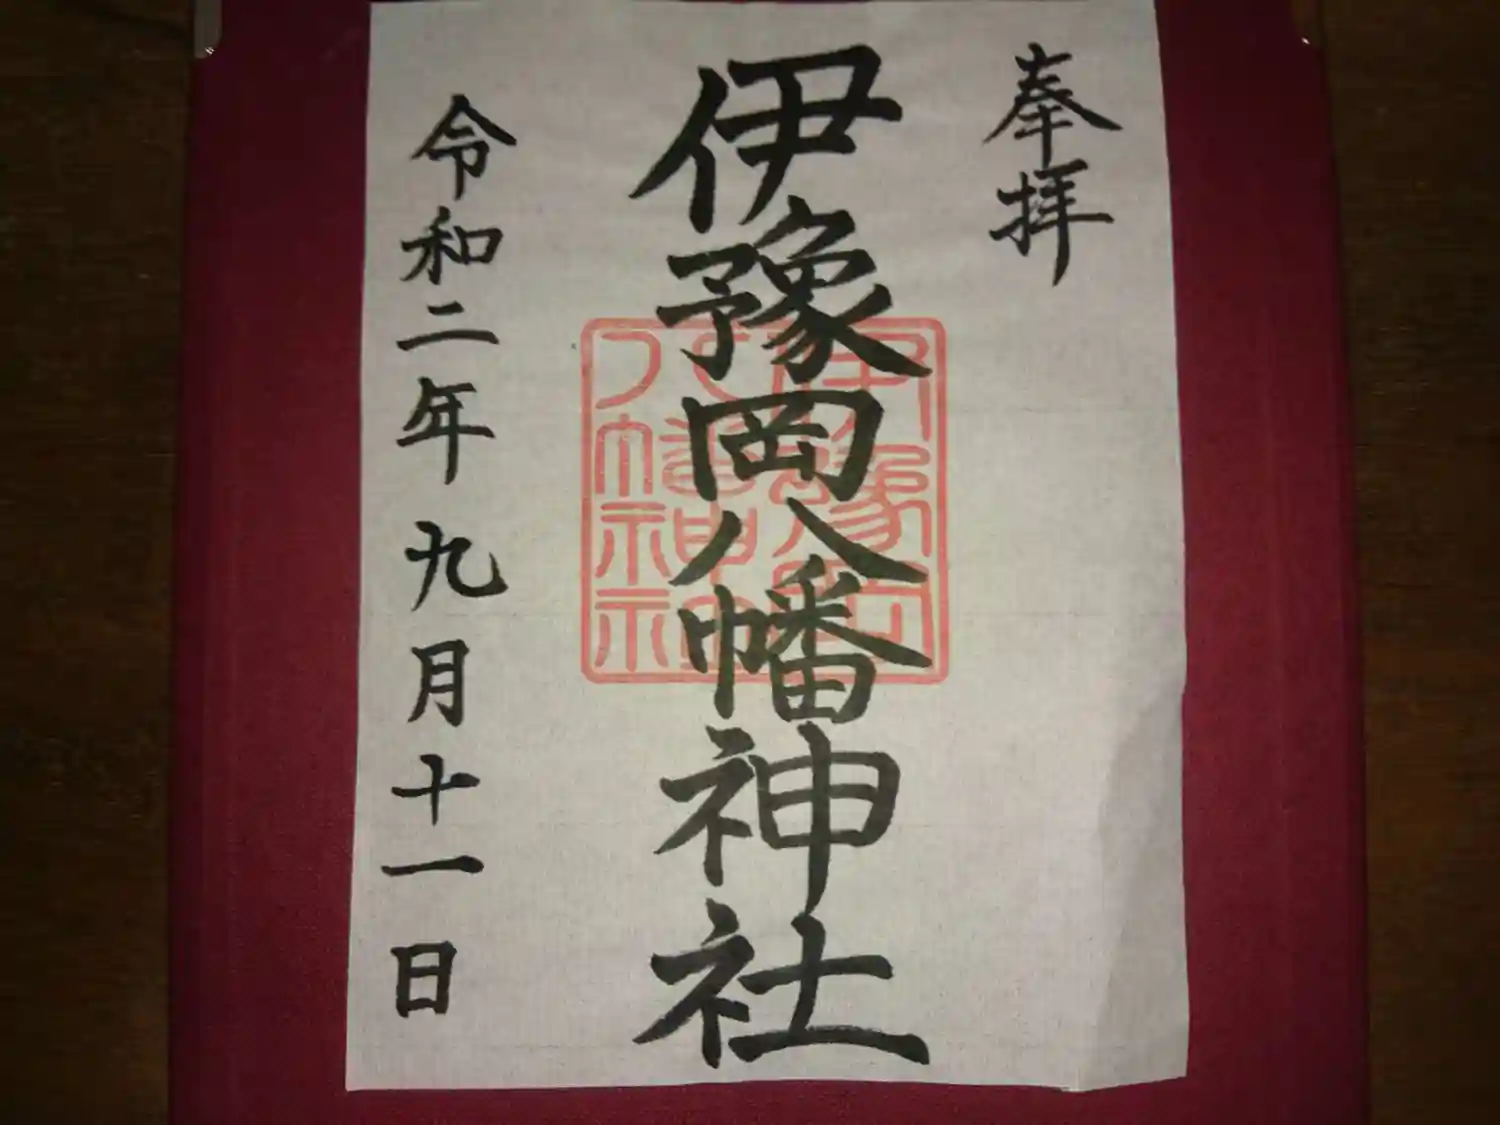 奉拝
伊豫岡八幡神社
伊豫岡八幡神社
令和二年九月十一日